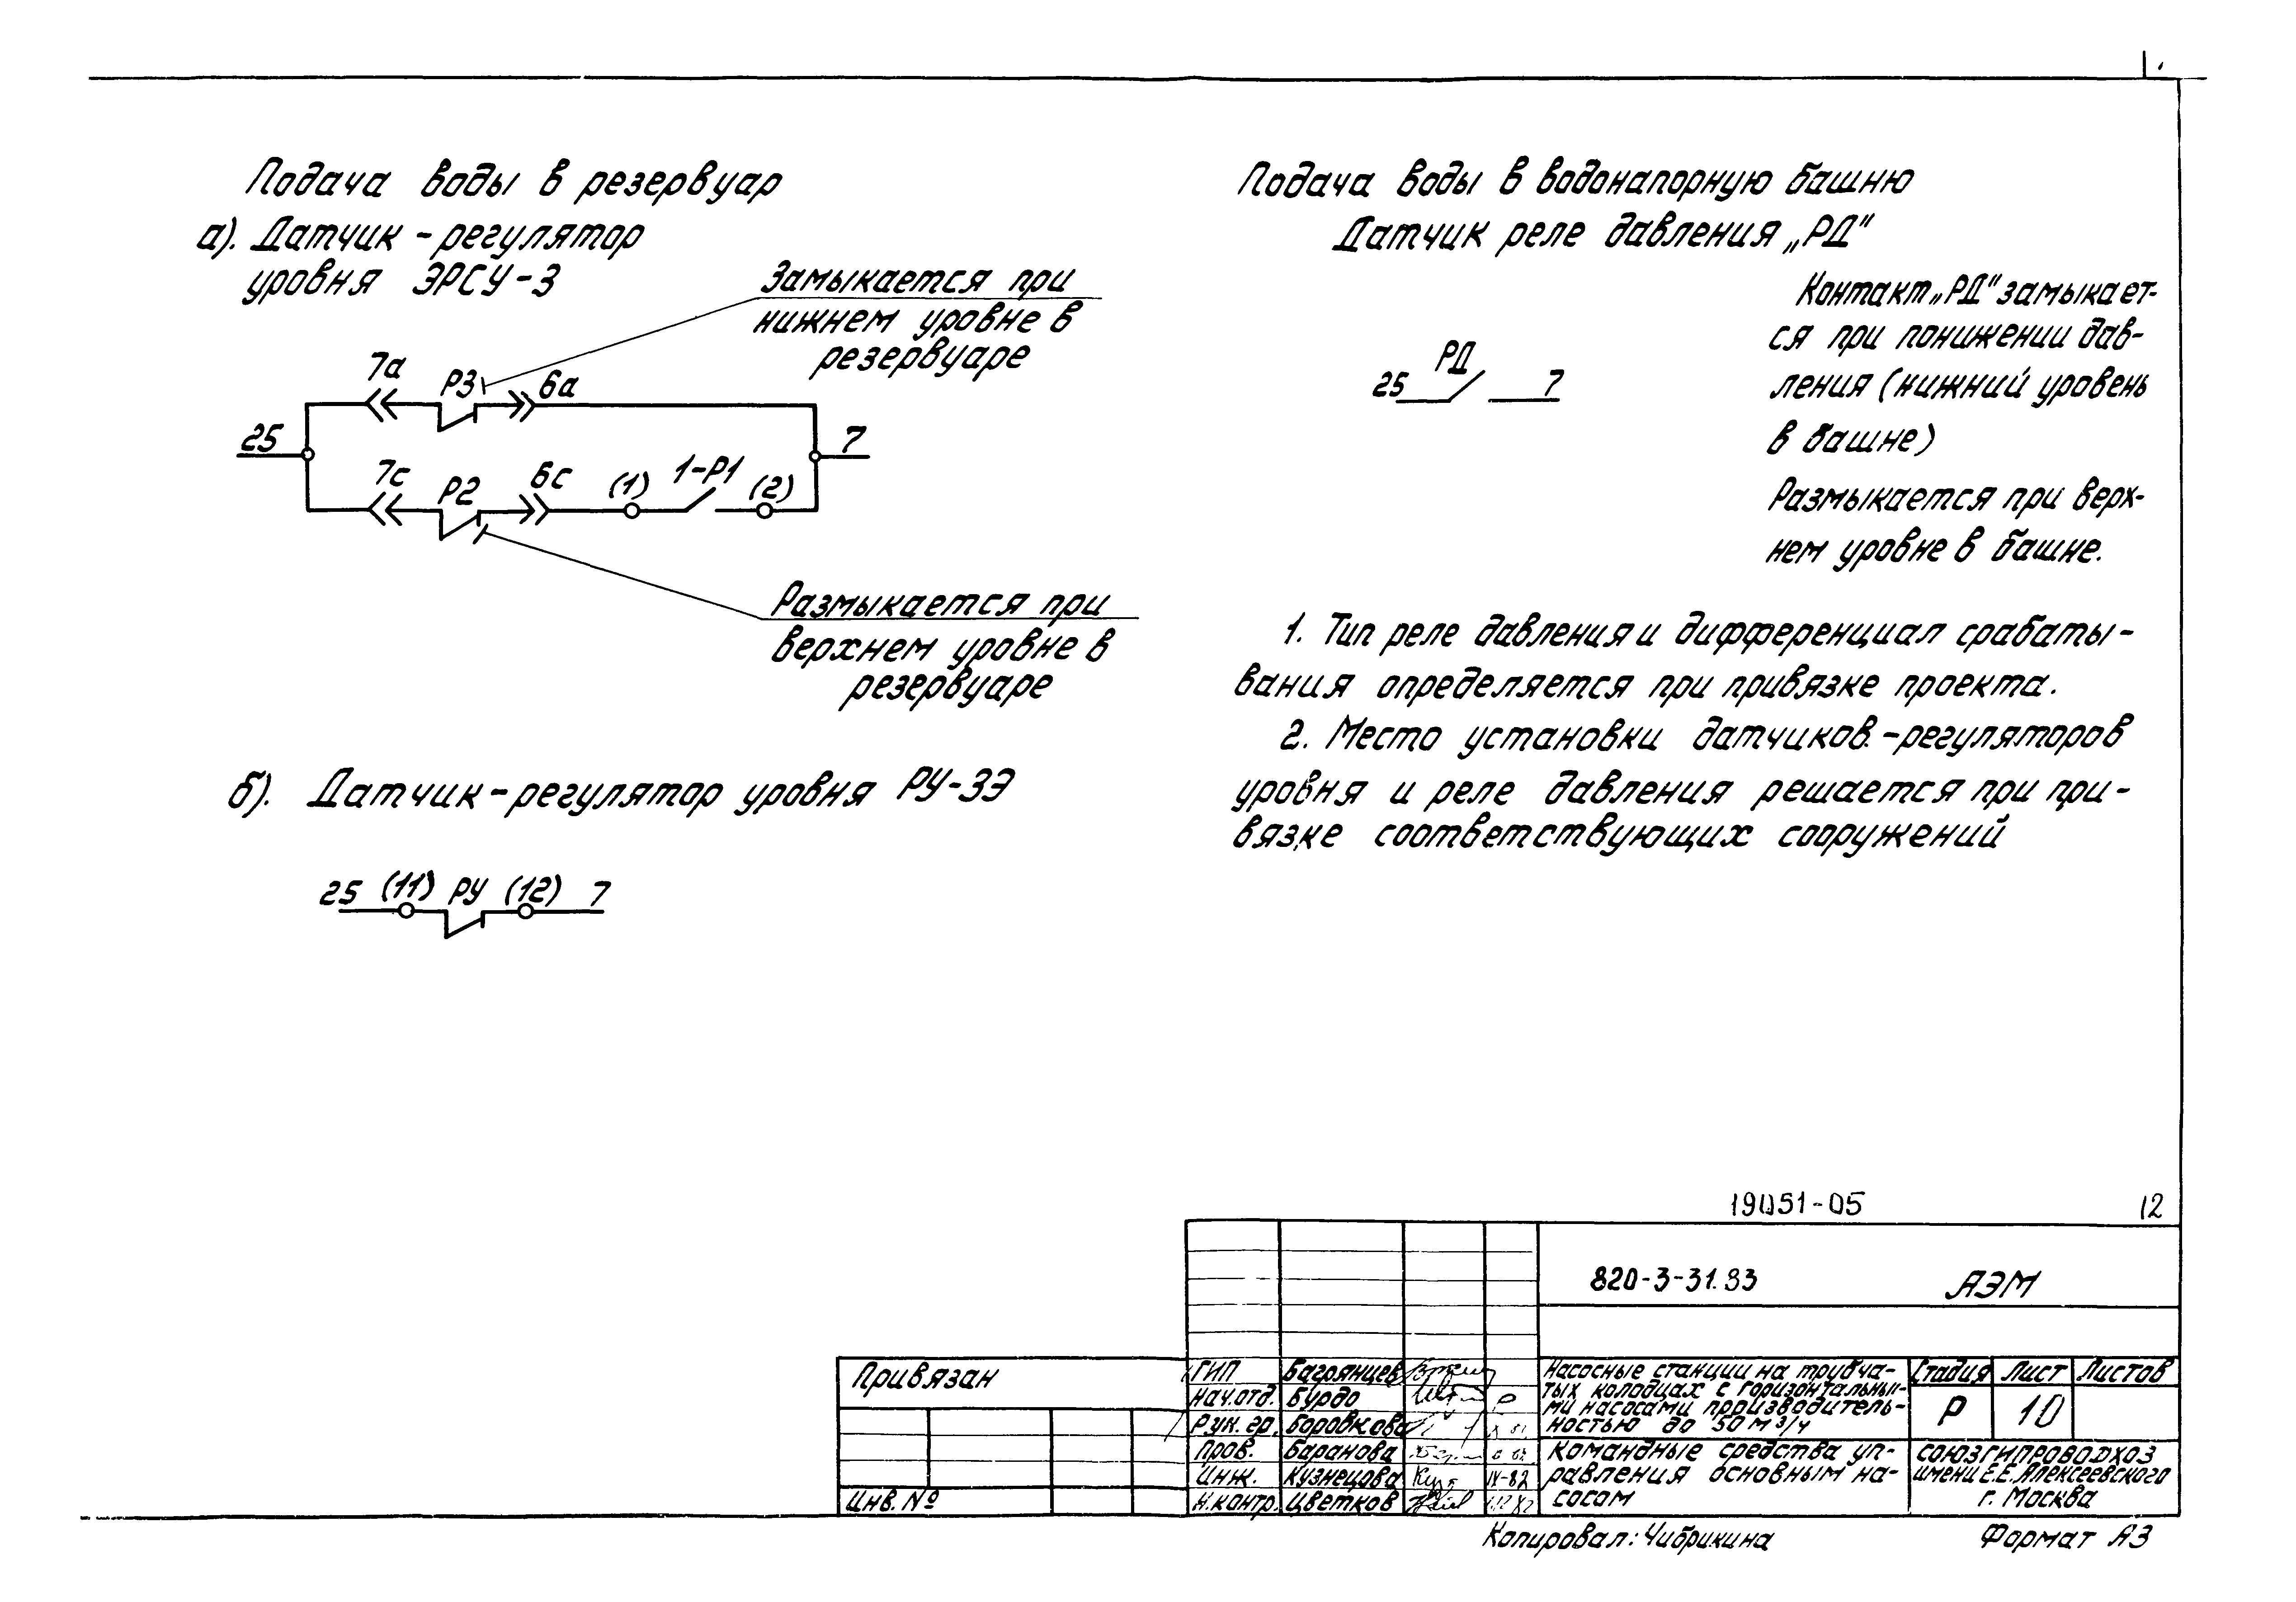 Подача воды в резервуар
а). Датчик - регулятор
уровня ЭРСУ-3
Замыкается при
нижнем уровне в
резервуаре
7а
Р3
6а
25
7
7с
Р2
6с
(1)
1-Р1
(2)
Размыкается при
верхнем уровне в
резервуаре
б). Датчик-регулятор уровня РУ-3Э
25 (11) РУ (12) 7
Подача воды в водонапорную башню
Датчик реле давления „РД"
Контакт „РД" замыкает-
ся при понижении дав-
ления (нижний уровень
в башне)
Размыкается при верх-
нем уровне в башне.
25 РД 7
1. Тип реле давления и дифференциал срабаты-
вания определяется при привязке проекта.
2. Место установки датчиков-регуляторов
уровня и реле давления решается при при-
вязке соответствующих сооружений
19051-05
12
820-3-31.83
АЭМ
Привязан
Инв. №
ГИП Багрянцев
Нач.отд. Бурдо
Рук. гр. Боровкова
Пров. Баранова
Инж. Кузнецова IX-82
Н.контр. Цветков
Насосные станции на трубча-
тых колодцах с горизонтальны-
ми насосами производитель-
ностью до 50 м³/ч
Стадия Лист Листов
Р 10
Командные средства уп-
равления основным на-
сосом
СОЮЗГИПРОВОДХОЗ
имени Е.Е. Алексеевского
г. Москва
Копировал: Чибрикина
Формат А3